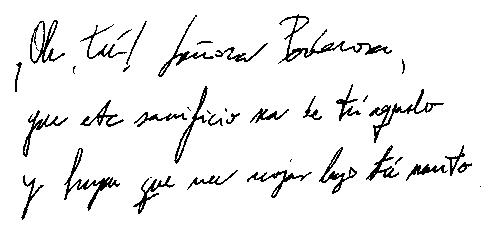 ¡Oh, tú! Señora Poderosa,
que este sacrificio sea de tú agrado
y haga que me cojas bajo tú manto